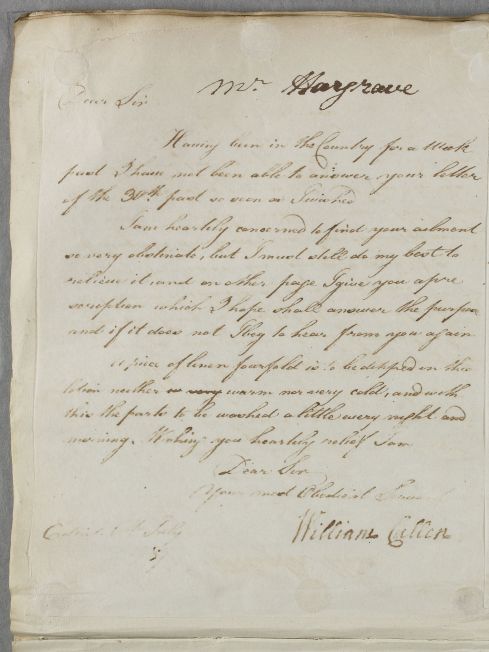 Mr Hargrave
Dear Sir
Having been in the Country for a Week
past I have not been able to answer your letter
of the 30th past so soon as I wished
I am heartily concerned to find your ailment
so very obstinate, but I must still do my best to
relieve it, and on other page I give you a pre
scription which I hope shall answer the purpose
and if it does not I beg to hear from you again
A piece of linen fourfold is to be dipped in the
lotion neither so very warm nor very cold, and with
this the parts to be washed a little every night and
morning. Wishing you heartily relief I am
Dear Sir
Your most Obedient Servant
William Cullen
July